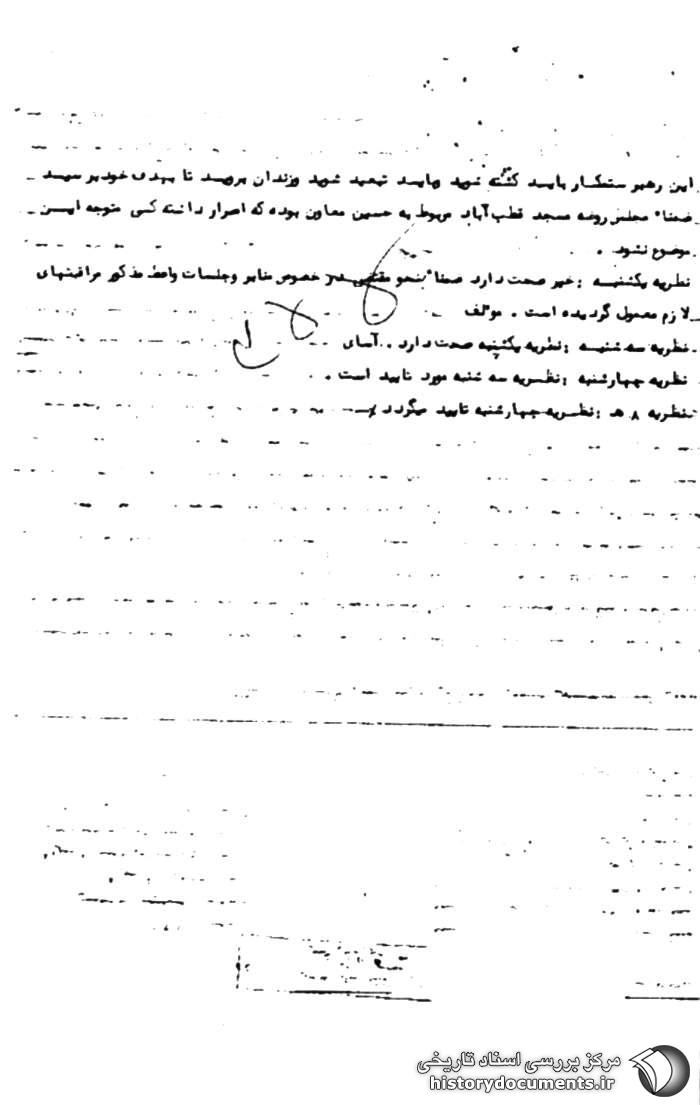 این رهبر ستمکار باید کشته شوید وباید تبعید شوید وزندان بروید تا بهدف خود برسید
ضمنا" مجلس روضه مسجد قطب آباد مربوط به حسین معاون بوده که اصرار داشته کسی متوجه ایـن
موضوع نشود .
نظریه یکشنبـه : خبر صحت دارد ضمنا" بنحو مقتضی در خصوص منابر وجلسات واعظ مذکور مراقبتهای
لازم معمول گردیده است . موئلف
نظریه سه شنبـه : نظریه یکشنبه صحت دارد . آسای
نظریه چهارشنبه : نظریه سه شنبه مورد تایید است .
نظریه ۸ هـ : نظریه چهارشنبه تایید میگردد
مرکز بررسی اسناد تاریخی
historydocuments.ir